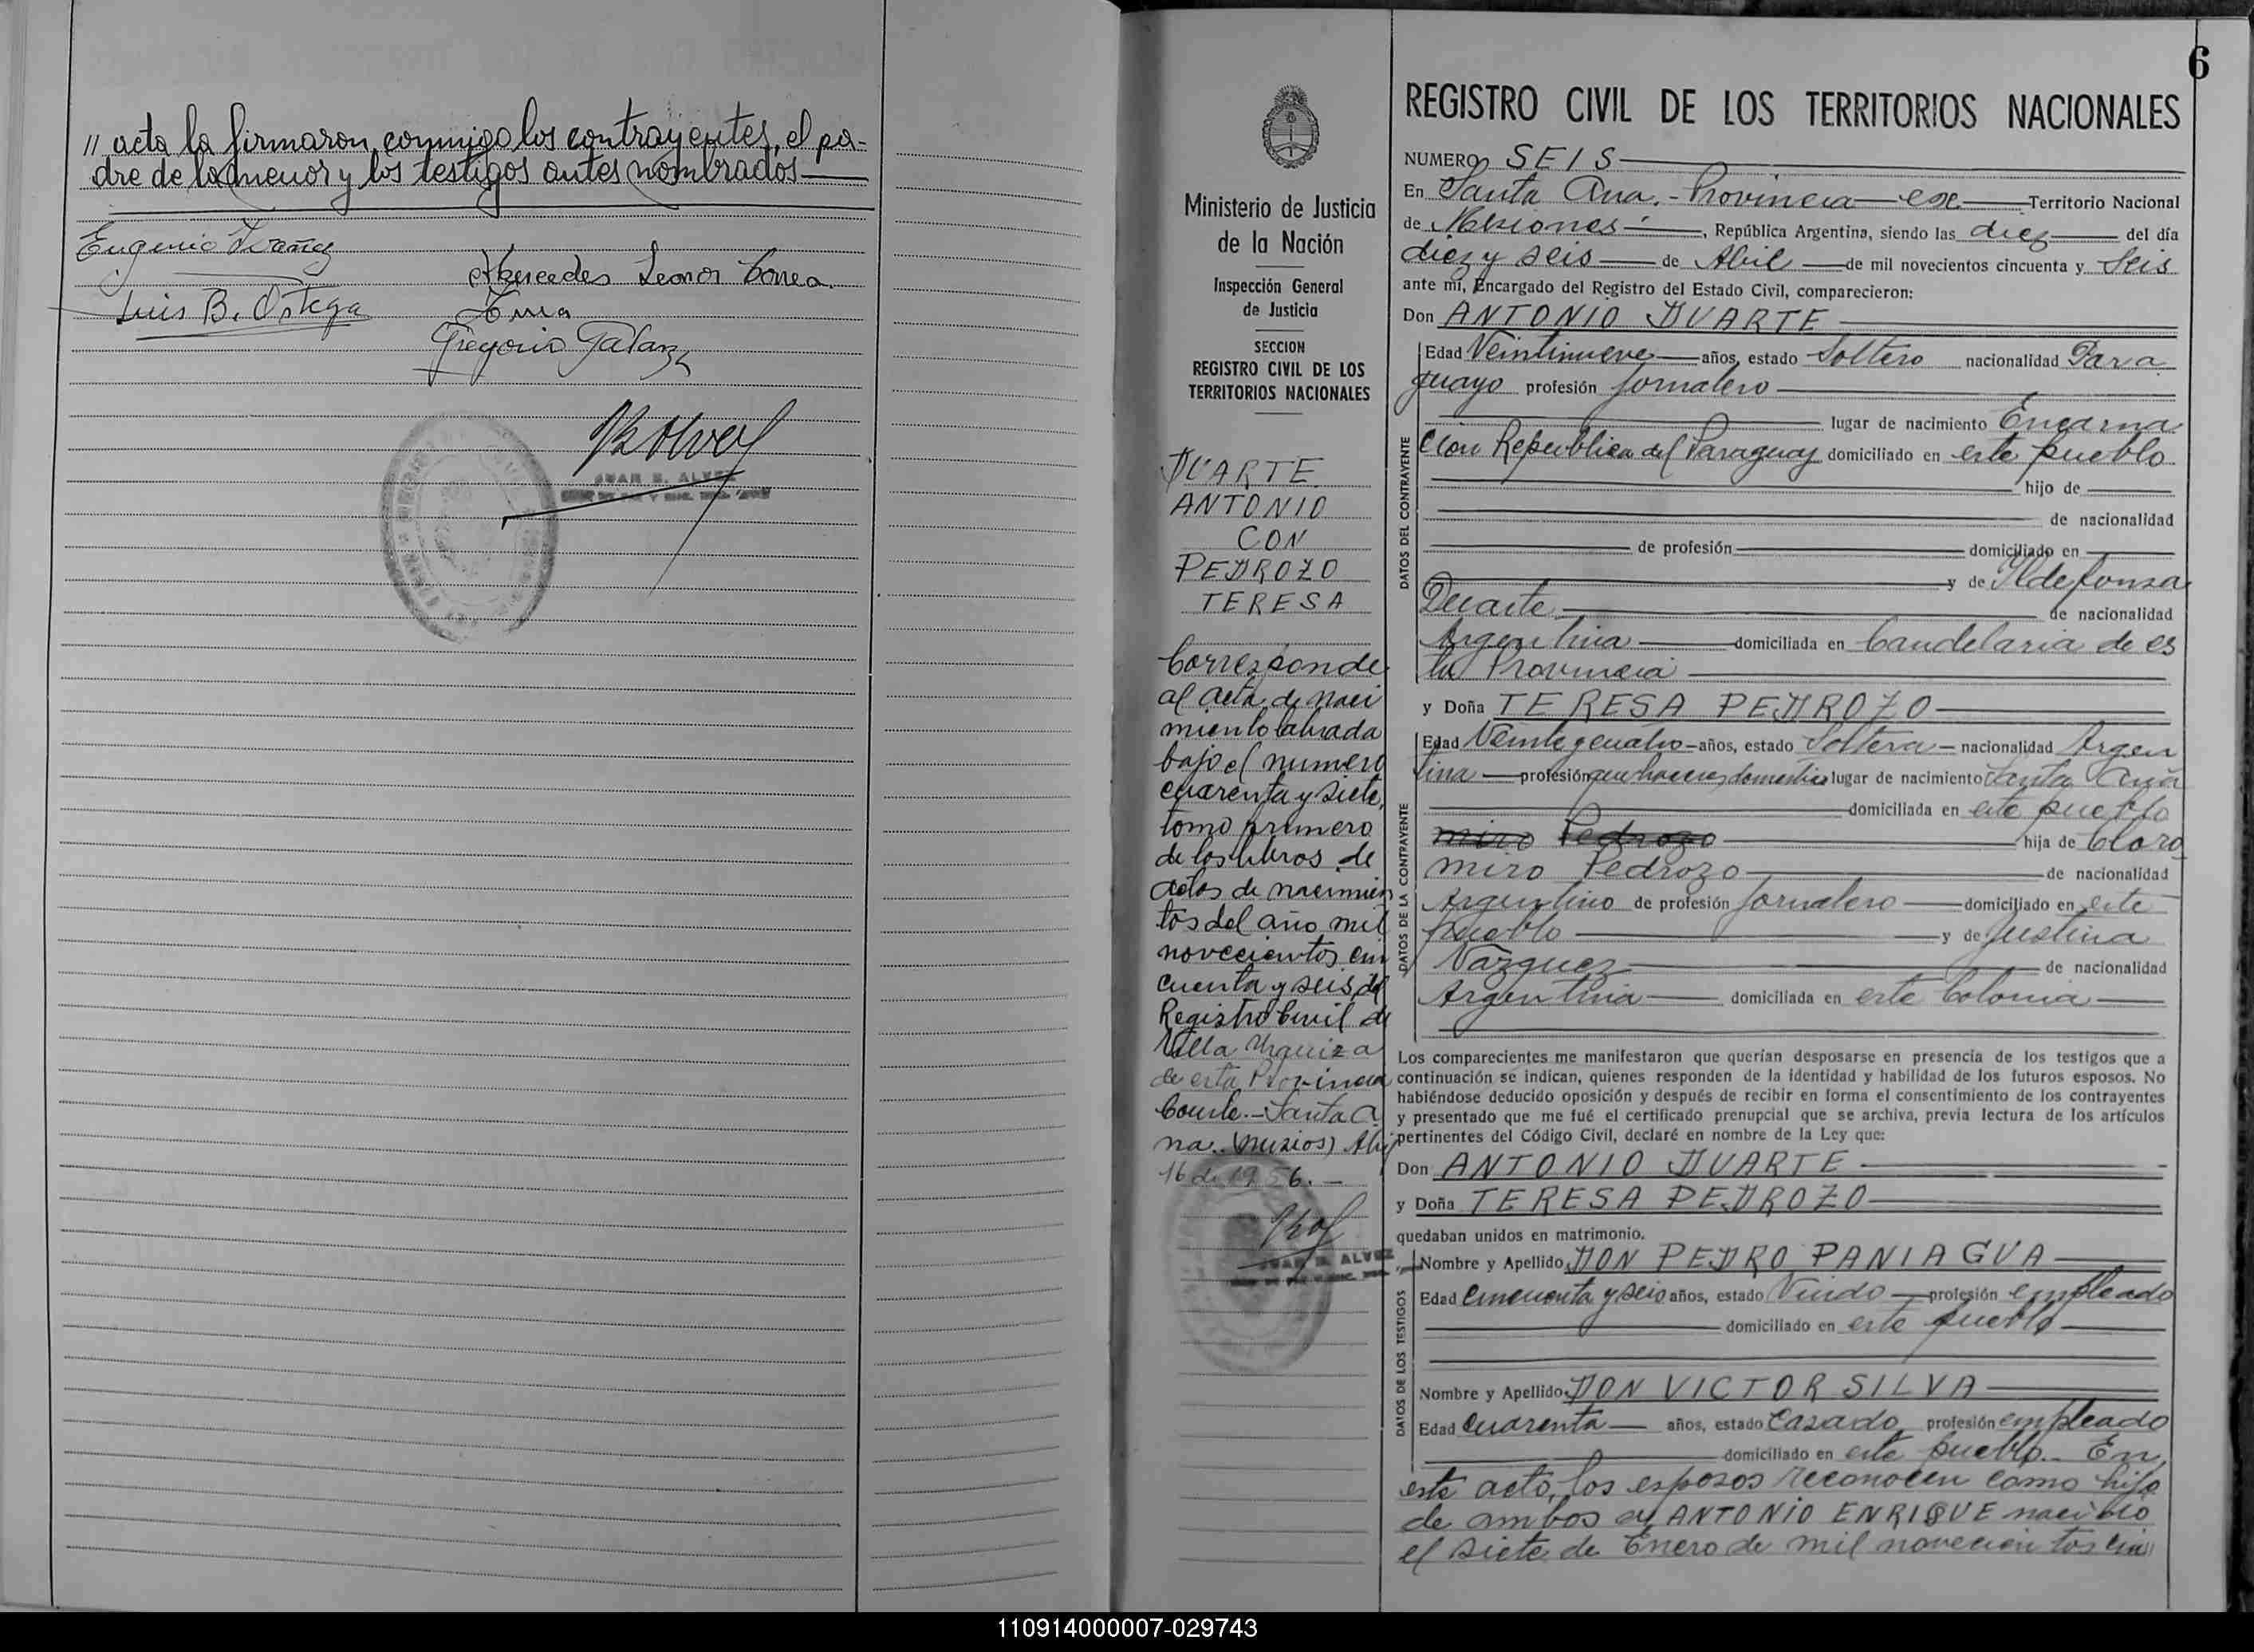 // acta la firmaron conmigo los contrayentes, el pa-
dre de la menor y los testigos antes nombrados
Eugenio
Mercedes Leonor Correa
Luis B. Ortega
Gregorio Galarza
JUAN E. ALVEZ
6
Ministerio de Justicia
de la Nación
Inspección General
de Justicia
SECCION
REGISTRO CIVIL DE LOS
TERRITORIOS NACIONALES
DUARTE
ANTONIO
CON
PEDROZO
TERESA
Corresponde
al acta de naci
miento labrada
bajo el numero
cuarenta y siete,
tomo primero
de los libros de
actas de nacimien
tos del año mil
novecientos cin
cuenta y seis del
Registro Civil de
Villa Urquiza
de esta Provincia
Conste.- Santa A
na. (Misios) Abi
16 de 1956.-
JUAN E. ALVEZ
REGISTRO CIVIL DE LOS TERRITORIOS NACIONALES
NUMERO SEIS
En Santa Ana.- Provincia ex Territorio Nacional
de Misiones, República Argentina, siendo las diez del día
diez y seis de Abil de mil novecientos cincuenta y Seis
ante mí, Encargado del Registro del Estado Civil, comparecieron:
Don ANTONIO DUARTE
DATOS DEL CONTRAYENTE
Edad Veintinueve años, estado Soltero nacionalidad Para
guayo profesión Jornalero
lugar de nacimiento Encarna
cion Republica del Paraguay domiciliado en este pueblo
hijo de
de nacionalidad
de profesión domiciliado en
y de Ildefonsa
Duarte de nacionalidad
Argentina domiciliada en Candelaria de es
ta Provincia
y Doña TERESA PEDROZO
DATOS DE LA CONTRAYENTE
Edad Veinte y cuatro años, estado Soltera nacionalidad Argen
tina profesión quehaceres domestico lugar de nacimiento Santa Ana
domiciliada en este pueblo
miro Pedrozo hija de Cloro
miro Pedrozo de nacionalidad
Argentino de profesión Jornalero domiciliado en este
pueblo y de Justina
Vazquez de nacionalidad
Argentina domiciliada en este Colonia
Los comparecientes me manifestaron que querían desposarse en presencia de los testigos que a
continuación se indican, quienes responden de la identidad y habilidad de los futuros esposos. No
habiéndose deducido oposición y después de recibir en forma el consentimiento de los contrayentes
y presentado que me fué el certificado prenupcial que se archiva, previa lectura de los artículos
pertinentes del Código Civil, declaré en nombre de la Ley que:
Don ANTONIO DUARTE
y Doña TERESA PEDROZO
quedaban unidos en matrimonio.
DATOS DE LOS TESTIGOS
Nombre y Apellido DON PEDRO PANIAGUA
Edad Cincuenta y seis años, estado Viudo profesión empleado
domiciliado en este pueblo
Nombre y Apellido DON VICTOR SILVA
Edad Cuarenta años, estado Casado profesión empleado
domiciliado en este pueblo.- En
este acto, los esposos reconocen como hijo
de ambos a ANTONIO ENRIQUE nacido
el siete de Enero de mil novecientos cin
110914000007-029743